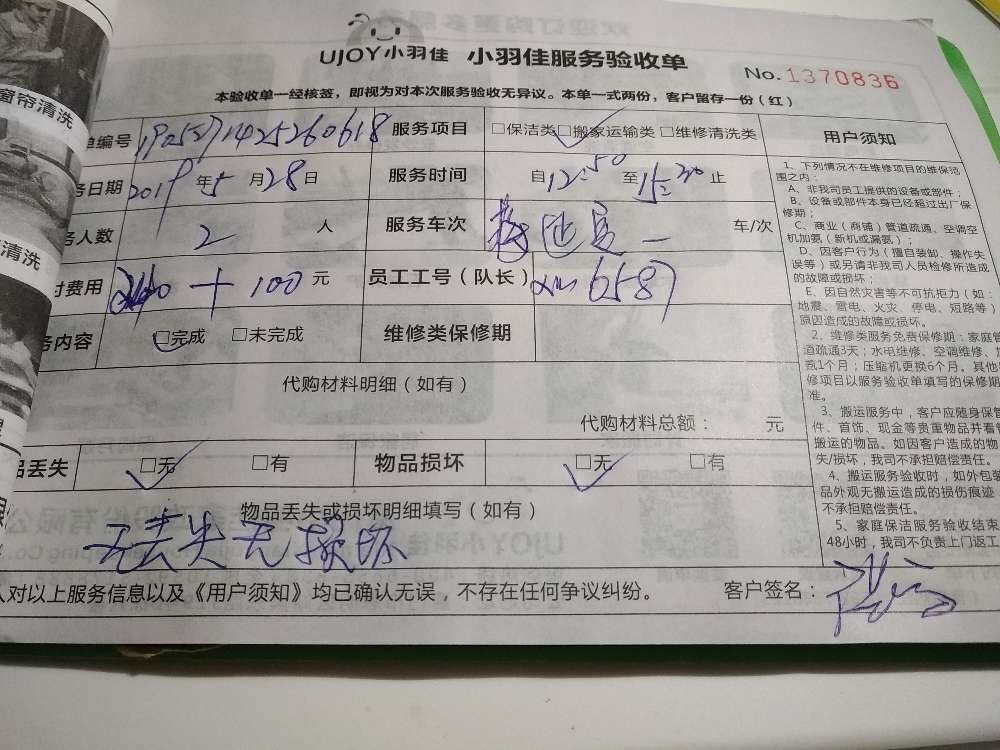 窗帘清洗
清洗
UJOY小羽佳 小羽佳服务验收单
No.1370836
本验收单一经核签，即视为对本次服务验收无异议。本单一式两份，客户留存一份（红）
单编号 服务项目 □保洁类 □搬家运输类 □维修清洗类
务日期 2019年5月28日 服务时间 自12:50至15:30止
务人数 2 人 服务车次 车/次
付费用 + 100 元 员工工号（队长） 6587
务内容 □完成 □未完成 维修类保修期
代购材料明细（如有）
代购材料总额： 元
品丢失 □无 □有 物品损坏 □无 □有
物品丢失或损坏明细填写（如有）
无丢失无损坏
人对以上服务信息以及《用户须知》均已确认无误，不存在任何争议纠纷。 客户签名：
用户须知
1、下列情况不在维修项目的维保范
围之内：
A、非我司员工提供的设备或部件；
B、设备或部件本身已经超过出厂保
修期；
C、商业（商铺）管道疏通、空调空
机加氨（新机或漏氨）；
D、因客户行为（擅自装卸、操作失
误等）或另请非我司人员检修所造成
的故障或损坏；
E、因自然灾害等不可抗拒力（如：
地震、雷电、火灾、停电、短路等）
原因造成的故障或损坏。
2、维修类服务免费保修期：家庭管
道疏通3天；水电维修、空调维修、加
氨1个月；压缩机更换6个月。其他
修项目以服务验收单填写的保修期
准。
3、搬运服务中，客户应随身保管
件、首饰、现金等贵重物品并看管
搬运的物品。如因客户造成的物
失/损坏，我司不承担赔偿责任。
4、搬运服务验收时，如外包装
品外观无搬运造成的损伤痕迹，
不承担赔偿责任。
5、家庭保洁服务验收结束
48小时，我司不负责上门返工